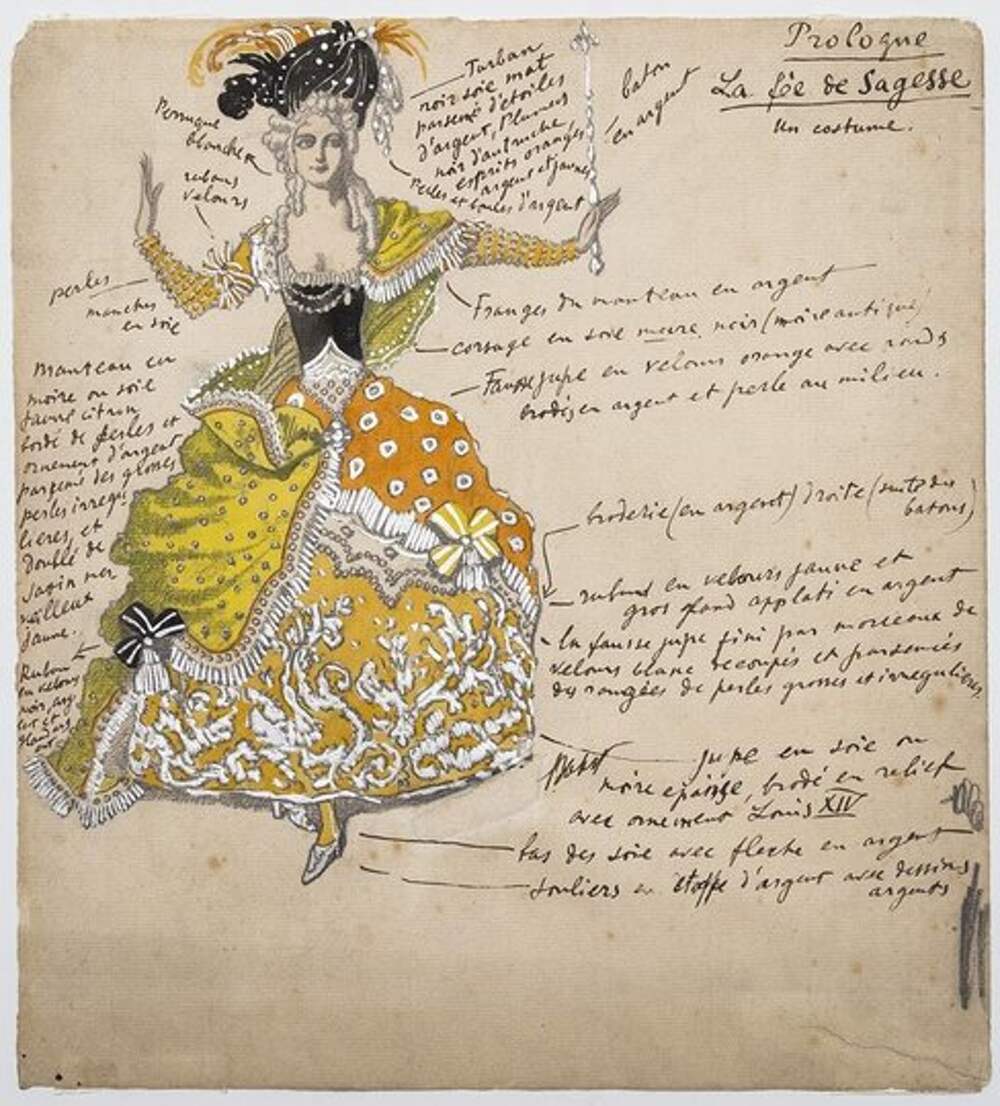 Prologue
La fée de Sagesse
Un costume.
Turban
noir soie mat
parsemé d'étoiles
d'argent, Plumes
noir d'autruche
esprits orangés
argent et jaunes
Perles et boules d'argent
baton
en argent
Perruque
blanche
rubans
velours
perles
manches
en soie
Franges du manteau en argent
corsage en soie moire noir (moire antique)
Fausse jupe en velours orange avec ronds
brodés en argent et perle au milieu.
Manteau en
moire ou soie
jaune citron
bordé de perles et
ornement d'argent
parsemé des grosses
perles irregu
lieres, et
doublé de
satin mer
veilleux
jaune.
Ruban
en velours
noir, arg
ent et
broderie (en argent) droite (suite des
batons)
rubans en velours jaune et
gros gland applati en argent
la fausse jupe fini par morceaux de
velours blanc recoupés et parsemés
des rangées de perles grosses et irregulieres
Bakst
jupe en soie ou
moire epaisse, brodé en relief
avec ornement Louis XIV
bas des soie avec fleche en argent
souliers en etoffe d'argent avec dessins
argents